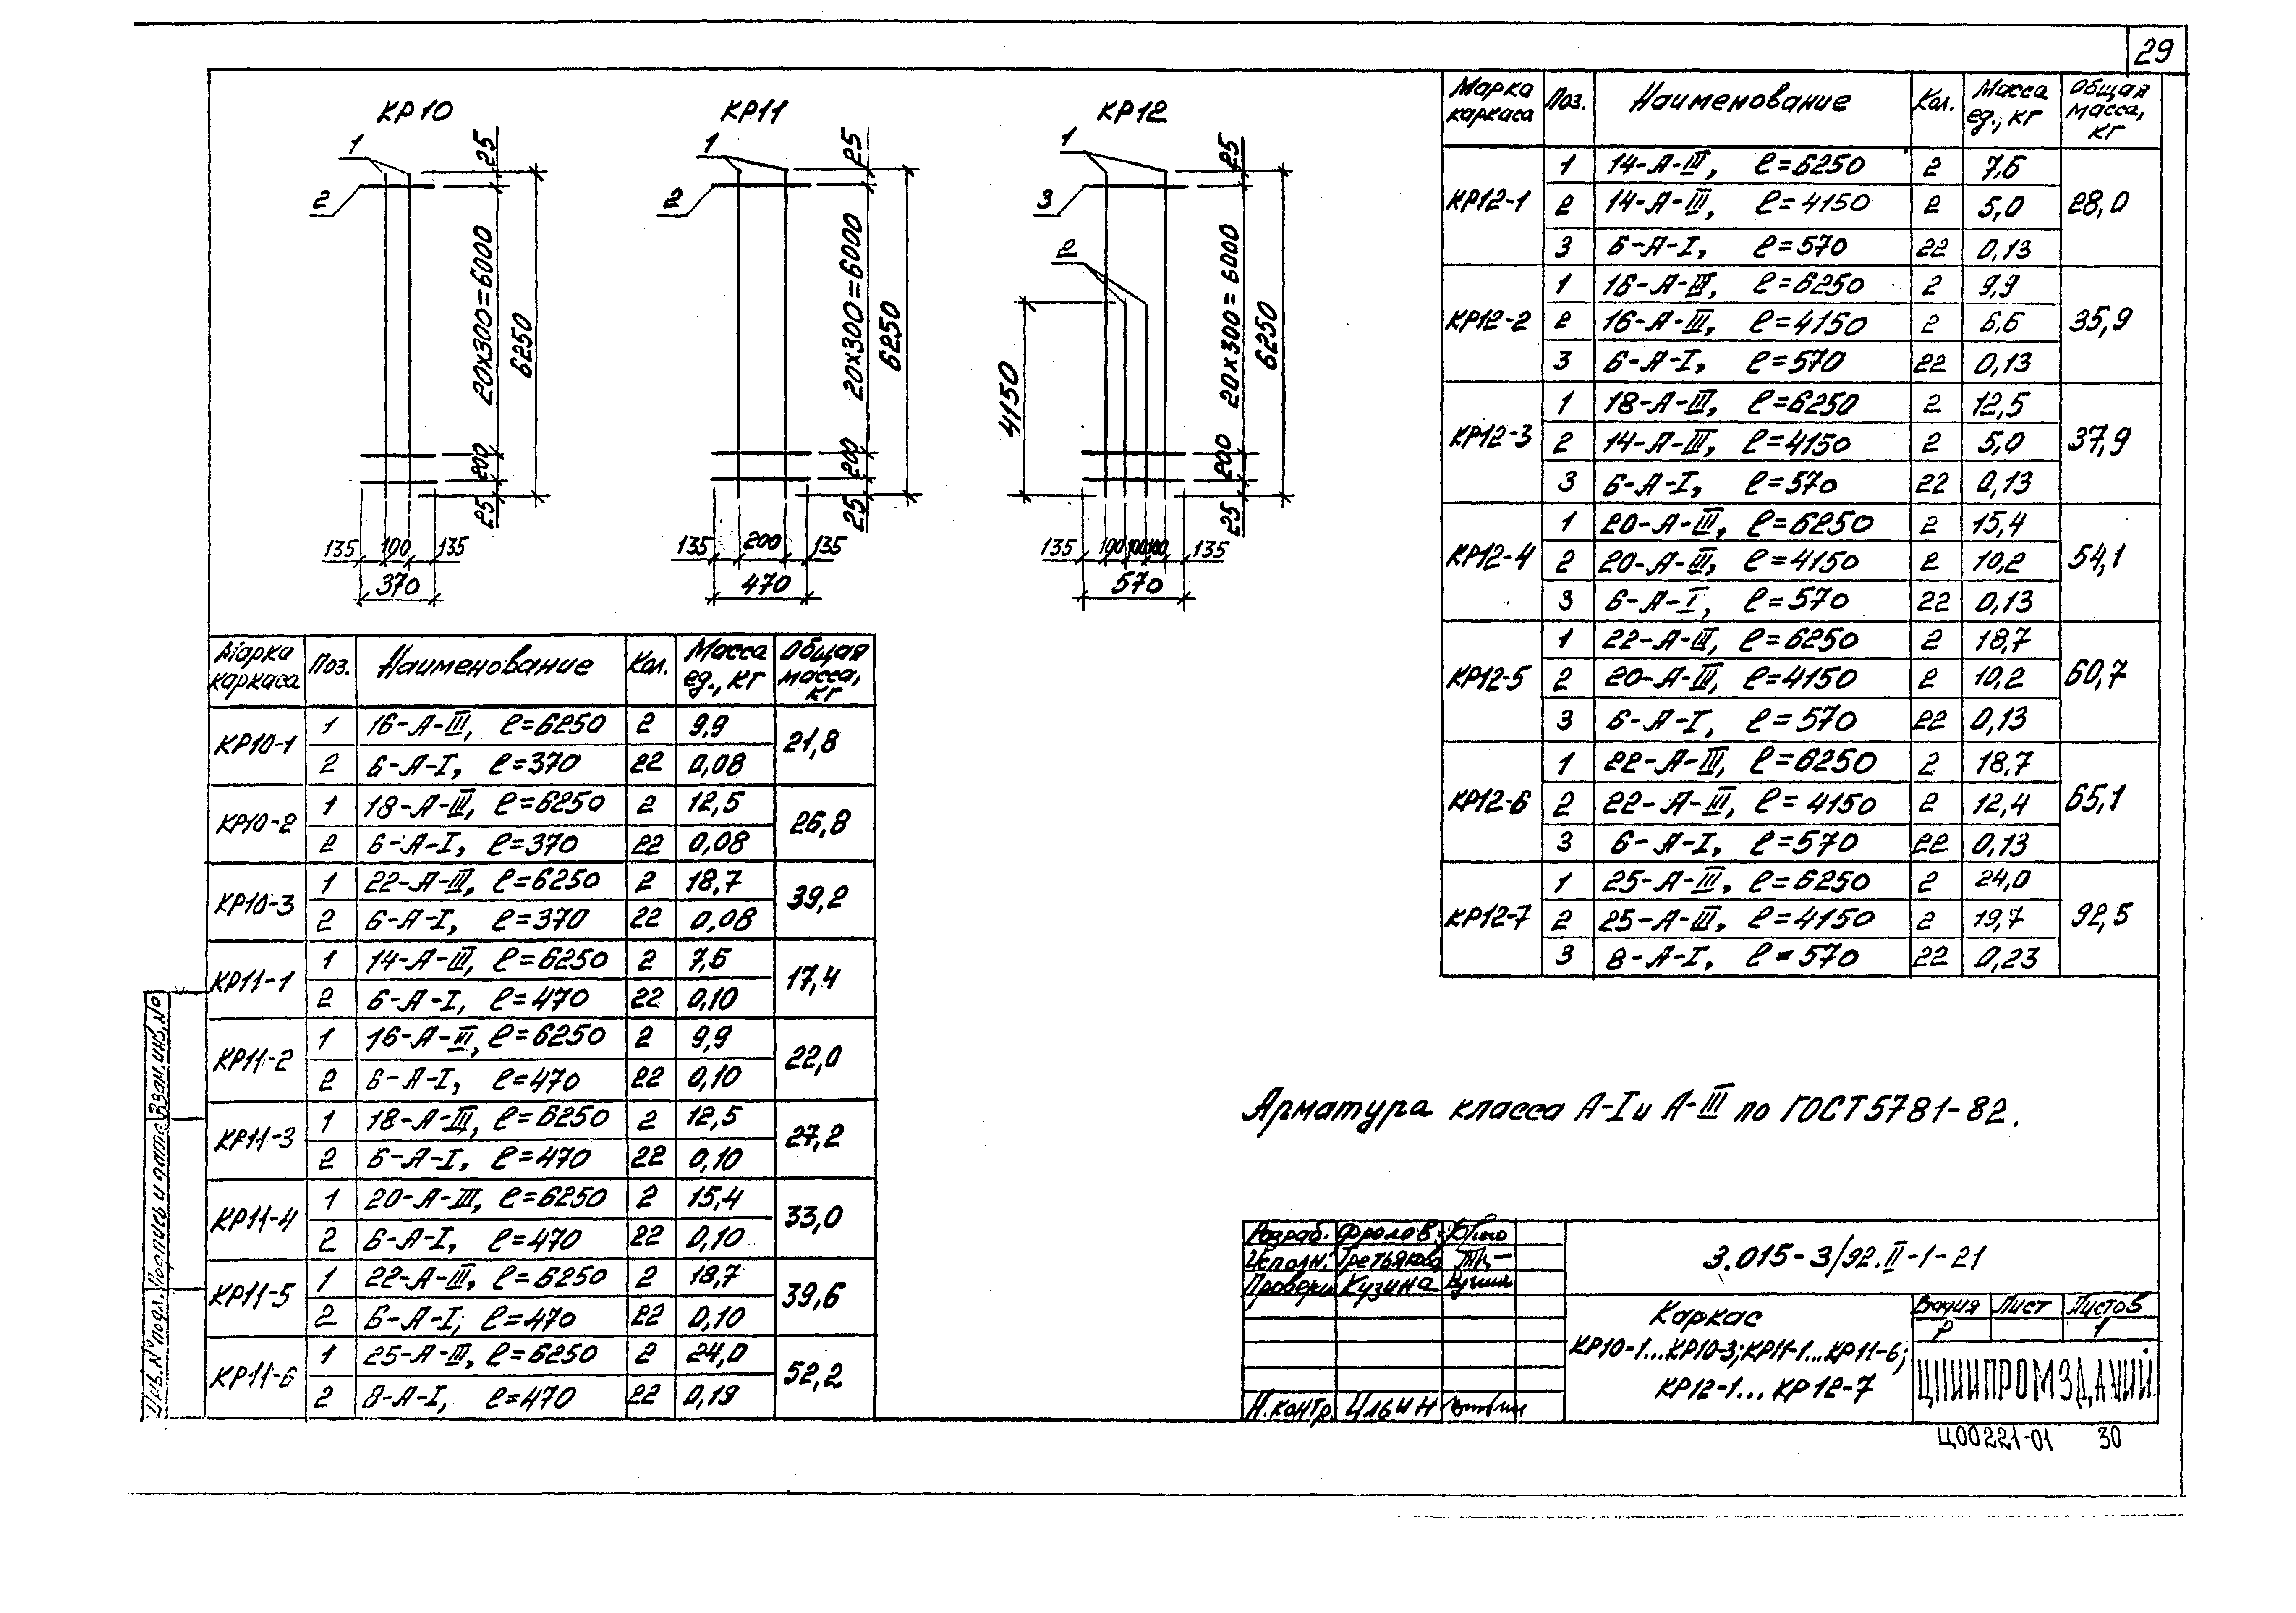 29
КР10
1
2
25
20х300=6000
6250
200
25
135 100 135
370
КР11
1
2
25
20х300=6000
6250
200
25
135 200 135
470
КР12
1
3
2
25
20х300=6000
6250
4150
200
25
135 100 100 100 135
570
Марка каркаса Поз. Наименование Кол. Масса ед., кг Общая масса, кг
КР10-1 1 16-А-III, ℓ=6250 2 9,9 21,8
2 6-А-I, ℓ=370 22 0,08
КР10-2 1 18-А-III, ℓ=6250 2 12,5 26,8
2 6-А-I, ℓ=370 22 0,08
КР10-3 1 22-А-III, ℓ=6250 2 18,7 39,2
2 6-А-I, ℓ=370 22 0,08
КР11-1 1 14-А-III, ℓ=6250 2 7,6 17,4
2 6-А-I, ℓ=470 22 0,10
КР11-2 1 16-А-III, ℓ=6250 2 9,9 22,0
2 6-А-I, ℓ=470 22 0,10
КР11-3 1 18-А-III, ℓ=6250 2 12,5 27,2
2 6-А-I, ℓ=470 22 0,10
КР11-4 1 20-А-III, ℓ=6250 2 15,4 33,0
2 6-А-I, ℓ=470 22 0,10
КР11-5 1 22-А-III, ℓ=6250 2 18,7 39,6
2 6-А-I, ℓ=470 22 0,10
КР11-6 1 25-А-III, ℓ=6250 2 24,0 52,2
2 8-А-I, ℓ=470 22 0,19
Марка каркаса Поз. Наименование Кол. Масса ед., кг Общая масса, кг
КР12-1 1 14-А-III, ℓ=6250 2 7,6 28,0
2 14-А-III, ℓ=4150 2 5,0
3 6-А-I, ℓ=570 22 0,13
КР12-2 1 16-А-III, ℓ=6250 2 9,9 35,9
2 16-А-III, ℓ=4150 2 6,6
3 6-А-I, ℓ=570 22 0,13
КР12-3 1 18-А-III, ℓ=6250 2 12,5 37,9
2 14-А-III, ℓ=4150 2 5,0
3 6-А-I, ℓ=570 22 0,13
КР12-4 1 20-А-III, ℓ=6250 2 15,4 54,1
2 20-А-III, ℓ=4150 2 10,2
3 6-А-I, ℓ=570 22 0,13
КР12-5 1 22-А-III, ℓ=6250 2 18,7 60,7
2 20-А-III, ℓ=4150 2 10,2
3 6-А-I, ℓ=570 22 0,13
КР12-6 1 22-А-III, ℓ=6250 2 18,7 65,1
2 22-А-III, ℓ=4150 2 12,4
3 6-А-I, ℓ=570 22 0,13
КР12-7 1 25-А-III, ℓ=6250 2 24,0 92,5
2 25-А-III, ℓ=4150 2 19,7
3 8-А-I, ℓ=570 22 0,23
Арматура класса А-I и А-III по ГОСТ 5781-82.
Инв.№ подл. Подпись и дата Взам.инв.№
Разраб. Фролов
Исполн. Третьякова
Провери Кузина
Н.контр. Ильин
3.015-3/92.II-1-21
Каркас
КР10-1...КР10-3; КР11-1...КР11-6;
КР12-1...КР12-7
Стадия Лист Листов
Р 1
ЦНИИПРОМЗДАНИЙ
Ц00221-01 30